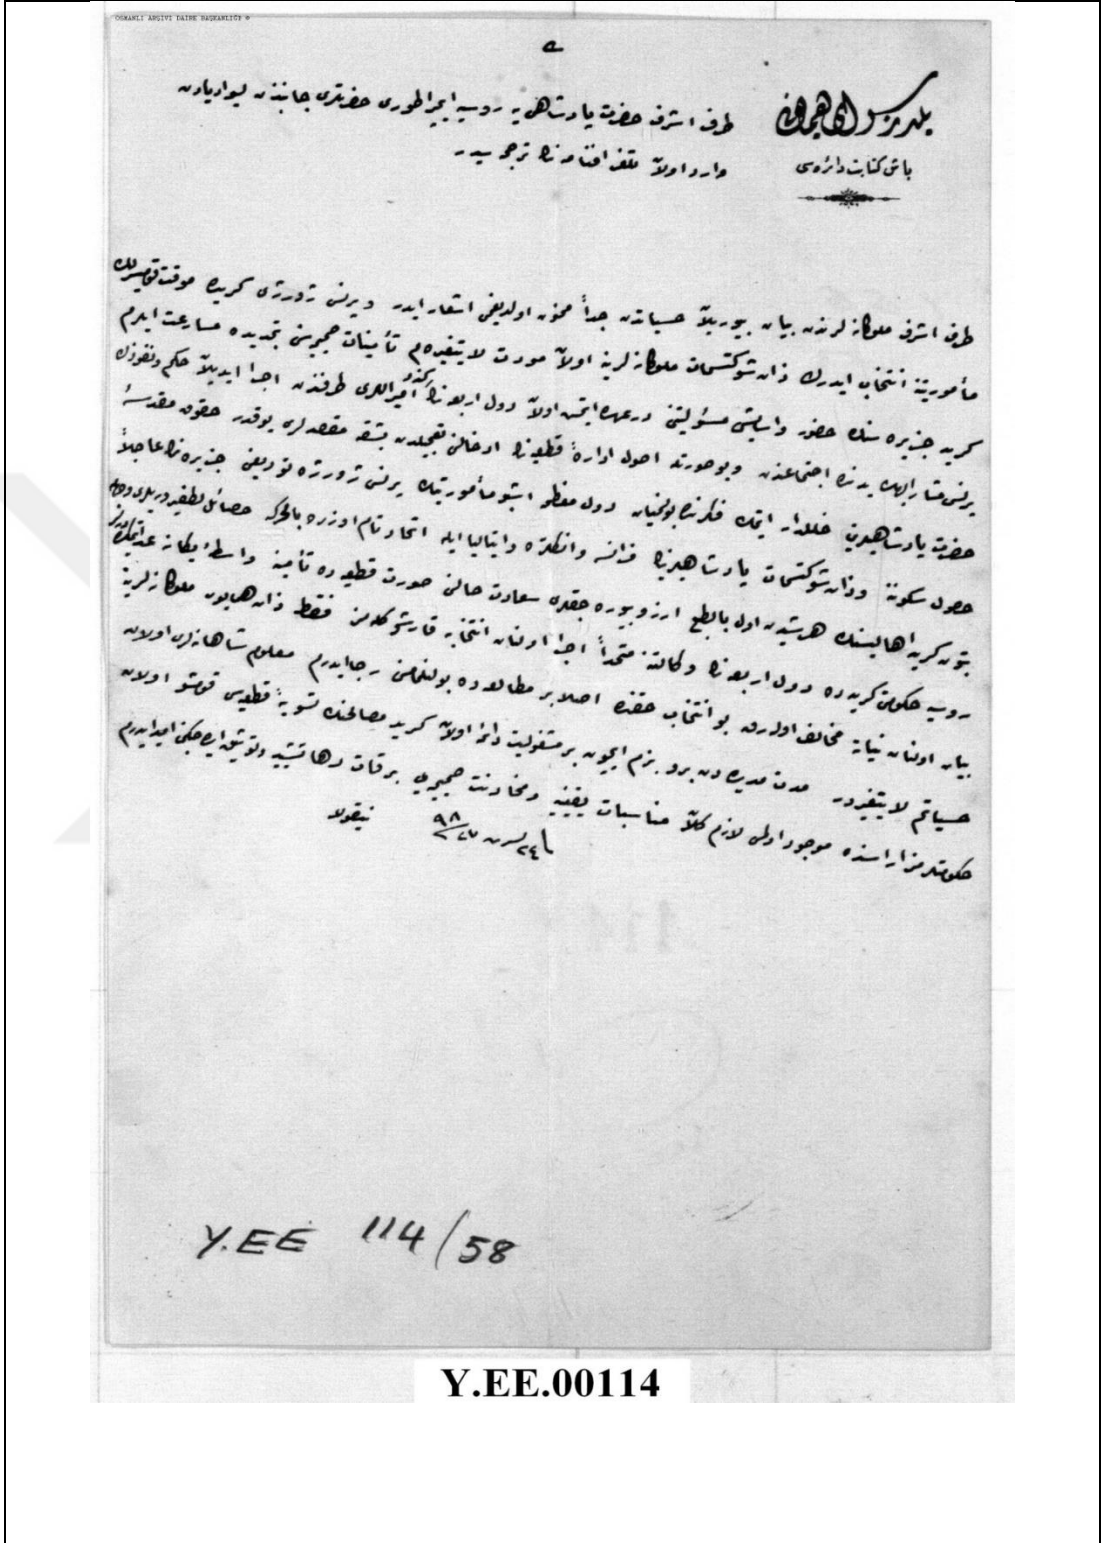 OSMANLI ARŞİVİ DAİRE BAŞKANLIĞI
يلديز سراى همايونى
باش كتابت دائره سى
طرف اشرف حضرت پادشاهى يه روسيه ايمپراطورى حضرتلرى جانبندن ليواديادن
وارد اولان تلغرافنامه نك ترجمه سيدر
طرف اشرف ملوكانه لرندن بيان بيوريلان حسياتدن جداً ممنون اولديغمى اشعار ايدر و پرنس ژورژى كريده موقت قوميسرلك
مأموريتنه انتخاب ايدرك ذات شوكتسمات ملوكانه لرينه اولان مودت لايتغيره م تأمينات صميميه سنى تجديده مسارعت ايلرم
كريد جزيره سنك حضور و آسايشى مسئوليتنى درعهده ايتمش اولان دول اربعه نك كندو اميراللرى طرفندن اجرا ايديلان حكم و نفوذك
پرنس مشار اليهك يدنده اجتماعندن و بوصورتله اصول اداره قطعيه نك ادخالنى تعجيلدن بشقه مقصدلرى يوقدر حقوق مقدسه
حضرت پادشاهيلرينى خللدار ايتمك فكرنده بولنميان دول معظمه اشبو مأموريتك پرنس ژورژه توديعنى جزيره نك عاجلاً
حصول سكوننه و ذات شوكتسمات پادشاهيلرينك فرانسه و انكلتره و ايتاليا ايله اتحاد تام اوزره بالحركه خصائل لطيفه
بتون كريد اهاليسنك هر شيدن اول بالطبع ارزو بيوره جقلرى سعادت حالنى صورت قطعيه ده تأمينه واسطه يكانه عد ايتمكده در
روسيه حكومتى كريدده دول اربعه نك وكالتنه متحداً اجرا اولنان انتخابه قارشو كلمز فقط ذات همايون ملوكانه لرينه
بيان اولنان نياته مخالف اوله رق بو انتخاب حقنده اصلا بر مطالعه ده بولنلمامسنى رجا ايدرم معلوم شاهانه لرى اولان
حسياتم لايتغيردر مدت مديده دن برو بزم ايچون بر مشغوليت دائمه اولان كريد مصالحنك تسويه قطعيه سى قومشو اولان
حكومتلرمز اراسنده موجود اولمسى لازم كلان مناسبات يقينه و مخادنت صميميه يى برقات دها تشييد و توثيق ايده جكنى اميد ايدرم
نيقولا
Y.EE 114/58
Y.EE.00114